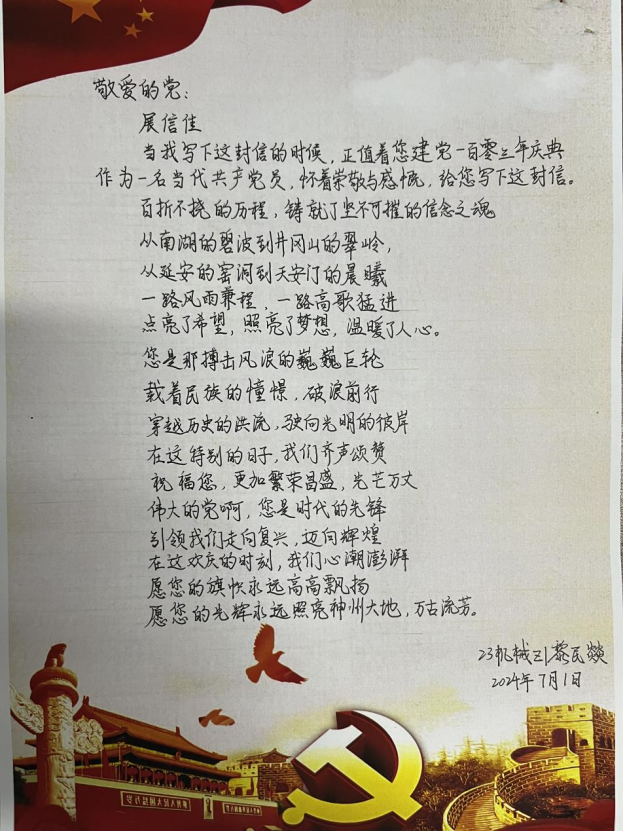 敬爱的党：
展信佳
当我写下这封信的时候，正值着您建党一百零三年庆典
作为一名当代共产党员，怀着崇敬与感慨，给您写下这封信。
百折不挠的历程，铸就了坚不可摧的信念之魂
从南湖的碧波到井冈山的翠岭，
从延安的窑洞到天安门的晨曦
一路风雨兼程，一路高歌猛进
点亮了希望，照亮了梦想，温暖了人心。
您是那搏击风浪的巍巍巨轮
载着民族的憧憬，破浪前行
穿越历史的洪流，驶向光明的彼岸
在这特别的日子，我们齐声颂赞
祝福您，更加繁荣昌盛，光芒万丈
伟大的党啊，您是时代的先锋
引领我们走向复兴，迈向辉煌
在这欢庆的时刻，我们心潮澎湃
愿您的旗帜永远高高飘扬
愿您的光辉永远照亮神州大地，万古流芳。
23机械Z1黎民燚
2024年7月1日